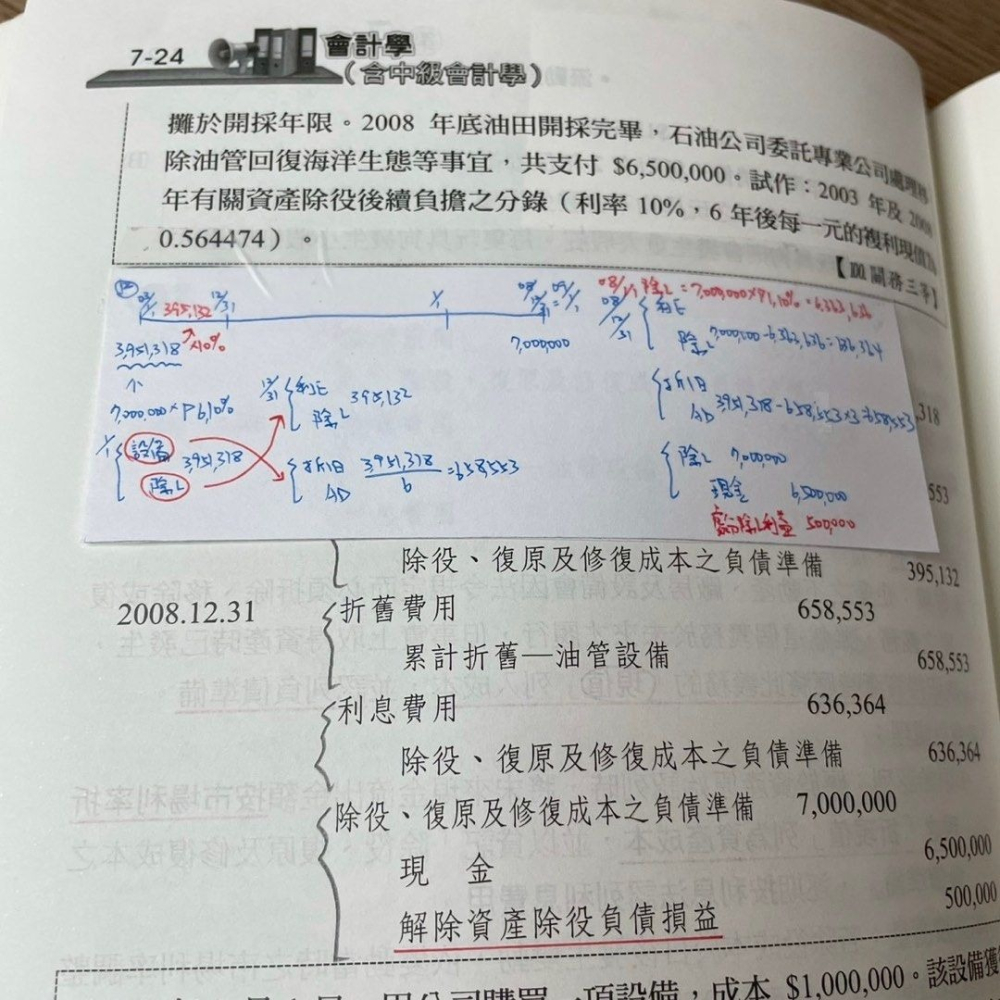 7-24 會計學
（含中級會計學）
攤於開採年限。2008 年底油田開採完畢，石油公司委託專業公司處理
除油管回復海洋生態等事宜，共支付 $6,500,000。試作：2003 年及
年有關資產除役後續負擔之分錄（利率 10%，6 年後每一元的複利現值為
0.564474）。
395,132
3,951,318 ×10%
7,000,000
7,000,000×P6,10%
設備 3,951,318
除L
12/31 利E 395,132
除L
折舊 3,951,318/6=658,553
AD
08/1/1 除L=7,000,000×P1,10%=6,363,636
12/31 利E
除L 7,000,000-6,363,636=
折舊 3,951,318-658,553×
AD
除L 7,000,000
現金 6,500,000
除L利益 500,000
,318
553
除役、復原及修復成本之負債準備 395,132
2008.12.31 折舊費用 658,553
累計折舊—油管設備 658,553
利息費用 636,364
除役、復原及修復成本之負債準備 636,364
除役、復原及修復成本之負債準備 7,000,000
現 金 6,500,000
解除資產除役負債損益 500,000
公司購買一項設備，成本 $1,000,000。該設備獲